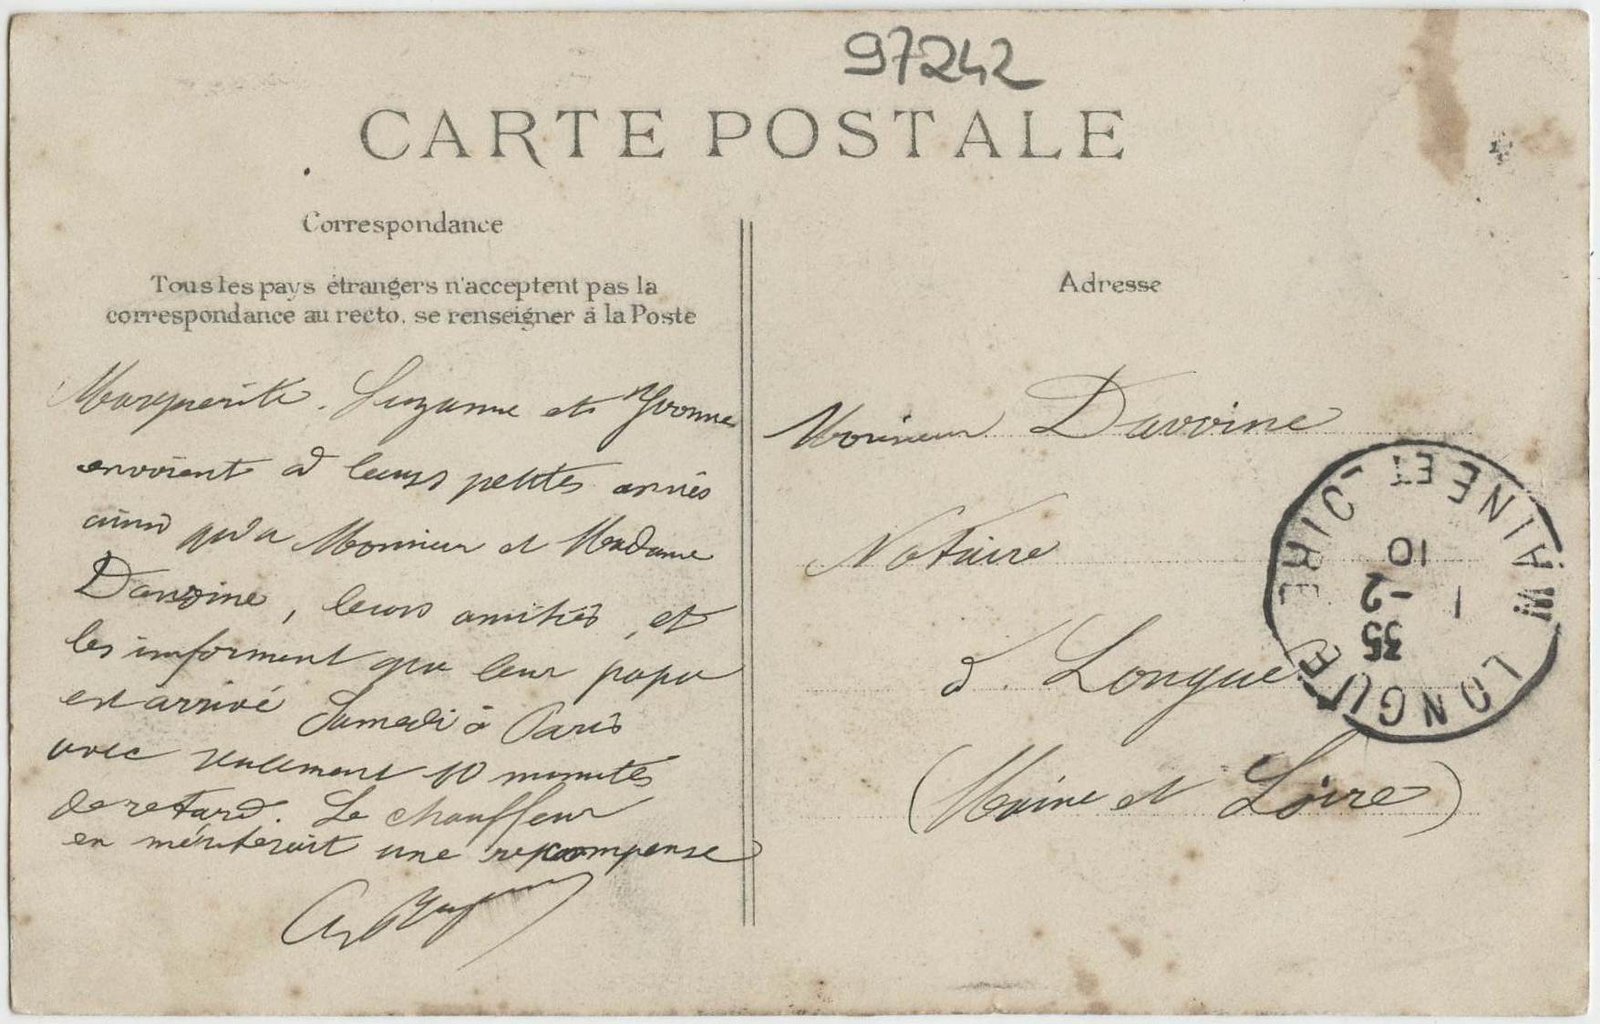 97242
CARTE POSTALE
Correspondance
Tous les pays étrangers n'acceptent pas la
correspondance au recto. se renseigner à la Poste
Marguerite. Suzanne et Yvonne
envoient à leurs petites amies
ainsi qu'à Monsieur et Madame
Davoine, leurs amitiés, et
les informent que leur papa
est arrivé Samedi à Paris
avec seulement 10 minutes
de retard. Le chauffeur
en mériterait une récompense
Adresse
Monsieur Davoine
Notaire
à Longué
(Maine et Loire)
LONGUÉ
MAINE ET LOIRE
1 -2
10
35